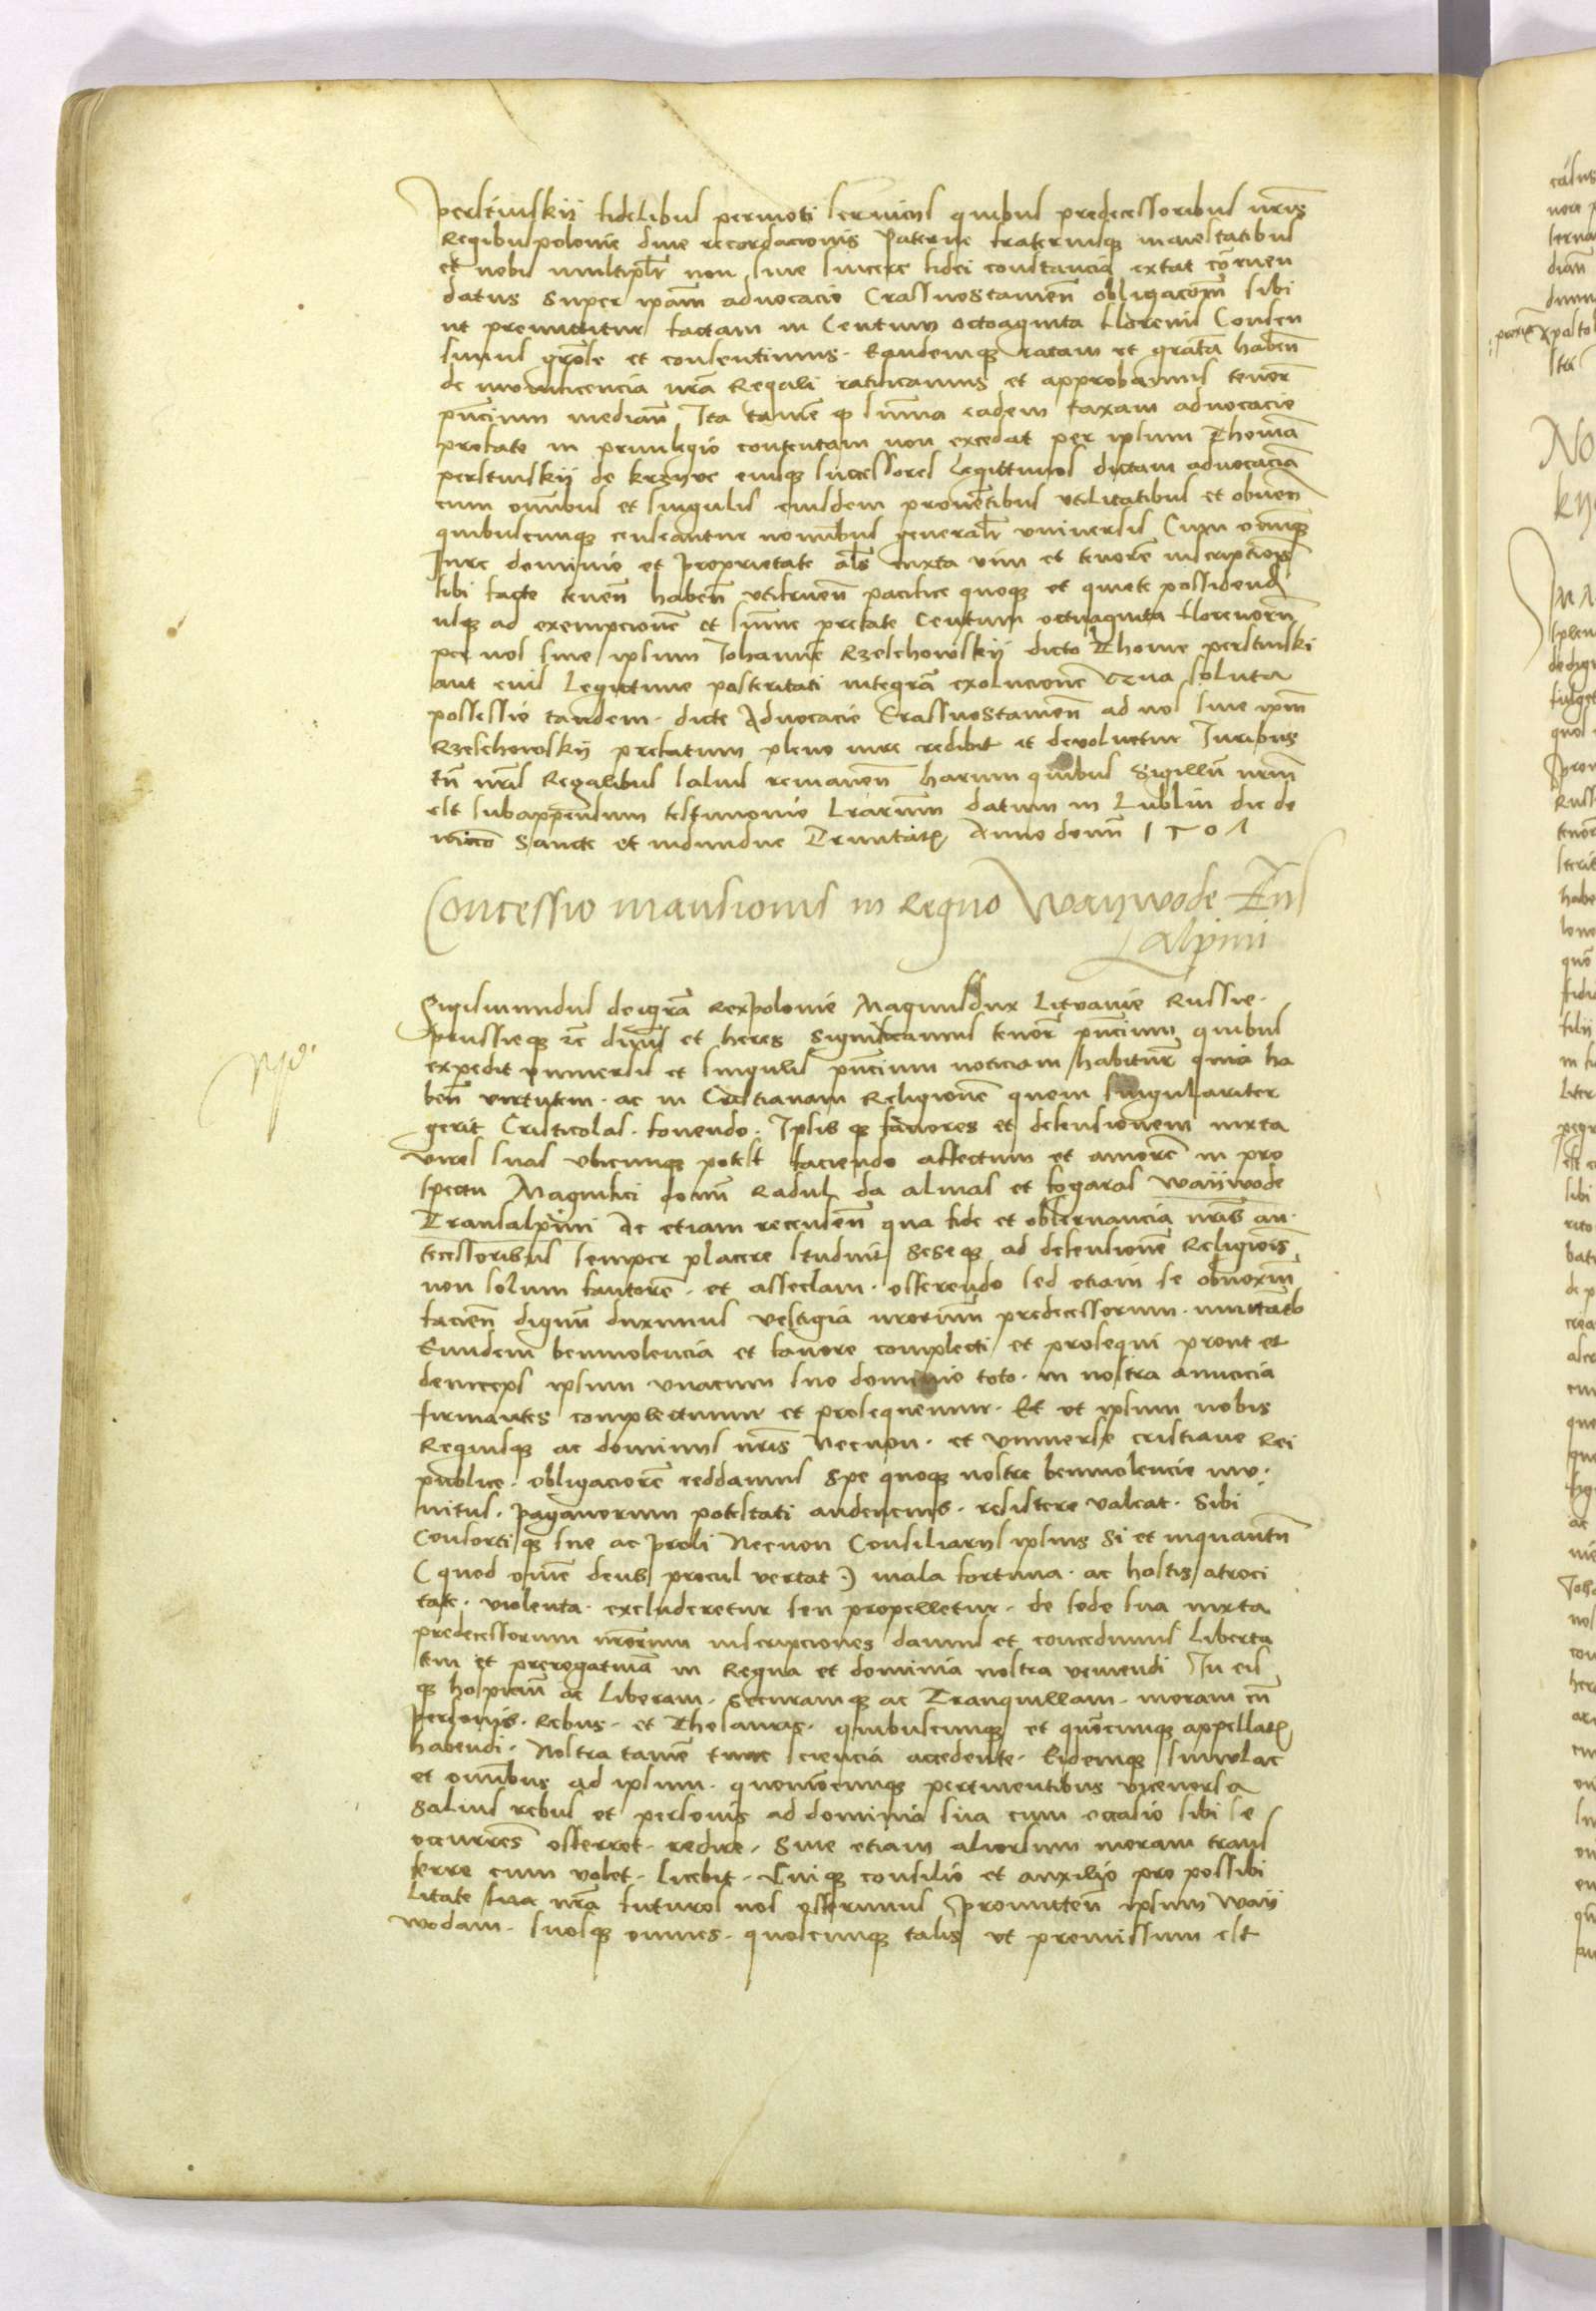 perstinskij fidelibus permoti serviciis quibus predecessoribus nr̄is
Regibus polonie dive recordacionis Paterne fraterneq3 maiestatibus
et nobis multiplr̄ non sine sincere fidei constancia extat com̄en
datus Super ip̄am advocacie Crassnostamien̄ obligacōm̄ sibi
ut premittitur factam in Centum octoaginta florenis Consen
simus grōse et consentimus. Eandemq3 ratam et grātā haben̄
de munificencia nrā Regali ratificamus et approbamus tenor̄
pn̄cium median̄ Ita tamē q3 sum̄a eadem taxam advocacie
prefate in privilegio contentam non excedat per ipsum Thomā
perstinskij de krzywe eiusq3 successores Legittimos dictam advocaciā
cum om̄ibus et singulis eiusdem provētibus utilitatibus et obven̄
quibuscunq3 censeantur nominibus generalr̄ universis Cum omniq3
Iure dominio et proprietate als̄ iuxta vim et tenorē inscriptiōis
sibi facte tenen̄ haben̄ utifruen̄ pacifice quoq3 et quiete possidend̄
usq3 ad exempcionē et sum̄e prefate Centum octuaginta florenorū
per nos sive ipsum Iohannē Rzeschowskij dicto Thome perstinski
aut eius Legittime posteritati integrā exolucionē Qua soluta
possessio tandem. dicte Advocacie Crassnostamien̄ ad nos sive ip̄m̄
Rzeschowskij prefatum pleno iure redibit et devolvetur Iuribus
tn̄ nr̄is Regalibus salvis remanen̄ harum quibus Sigillū nrm̄
est subappensum testimonio Lrarum̄ datum in Lublin die do
minico Sancte et individue Trinitatis Anno domī 1507
Concessio mansionis in Regno Waywode Tns
salpini
Sigismundus dei grā Rex polonie Magnus dux Lituanie Russie.
prussieq3 zc̄ dn̄us et heres Significamus tenor̄ pn̄cium quibus
expedit universis et singulis pn̄cium noticiam habitur̄ quia ha
ben̄ virtutem. ac in Cristianam Religionē quem singulariter
gerit Cristicolas. fovendo. Ipsis q3 favores et defensionem iuxta
vires suas ubicunq3 potest faciendo affectum et amorē in pro
spectu Magnifici domī Radul da almas et fogaras Waijwode
Transalpini Ac etiam recensen̄ qua fide et observancia nr̄is an.
tecessoribus semper placere studuit Seseq3 ad defensionē Religiōis
non solum fautorē. et asseclam. offerendo sed etiam se obnoxiū
facien̄ dignū duximus vestigia nrorum̄ predecessorum. imitando
Eundem benivolencia et favore complecti et prosequi prout et
deinceps ipsum unacum suo dominio toto. in nostra amicicia
firmantes complectimur et prosequemur. Et ut ipsum nobis
Regnisq3 ac dominiis nr̄is Necnon. et universe cristiane Rei
publice. obligaciorē reddamus Spe quoq3 nostre benivolencie mu.
nitus. paganorum potestati audencius. resistere valeat. Sibi
Consortiq3 sue ac Proli Necnon Consiliariis ipsius Si et inquantū
(quod omē deus procul vertat) mala fortuna. ac hostis atroci
tate. violenta. excluderetur seu propelletur. de sede sua iuxta
predecessorum nrorum inscripciones damus et concedimus Liberta
tem et prerogativā in Regna et dominia nostra veniendi In eis
q3 hospiciū ac Liberam. securamq3 ac Tranquillam. moram cū
personis. Rebus. et Thesauris. quibuscunq3 et quōcunq3 appellatis
habendi. Nostra tamē tunc sciencia accedente. Eidemq3 simulac
et om̄ibus ad ipsum. quomōcunq3 pertinentibus viceversa
Salvis rebus et personis ad dominia sua cum occasio sibi se
occurrēs offerret. redire. Sive etiam aliorsum moram trans
ferre cum volet. licebit. Cuiq3 consilio et auxilio pro possibi
litate sua nrā futuros nos offerimus Promitten̄ ipsum Waij
wodam. suosq3 omnes. quoscunq3 talis ut premissum est